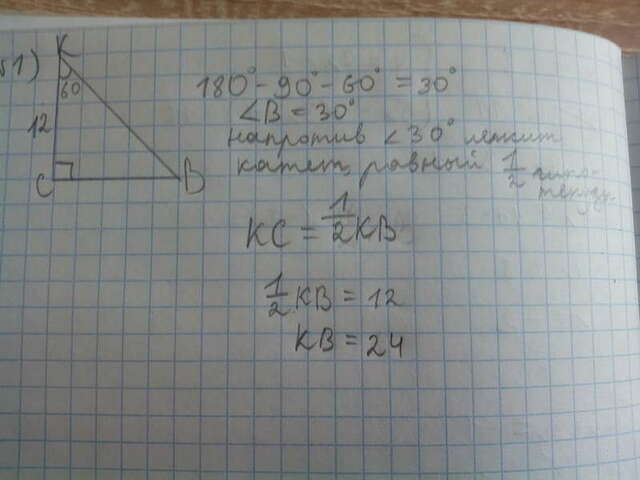 51)
K
60
12
C
B
180° - 90° - 60° = 30°
∠B = 30°
напротив ∠30° лежит
катет, равный 1/2 гипо-
тенузы
KC = 1/2 KB
1/2 KB = 12
KB = 24